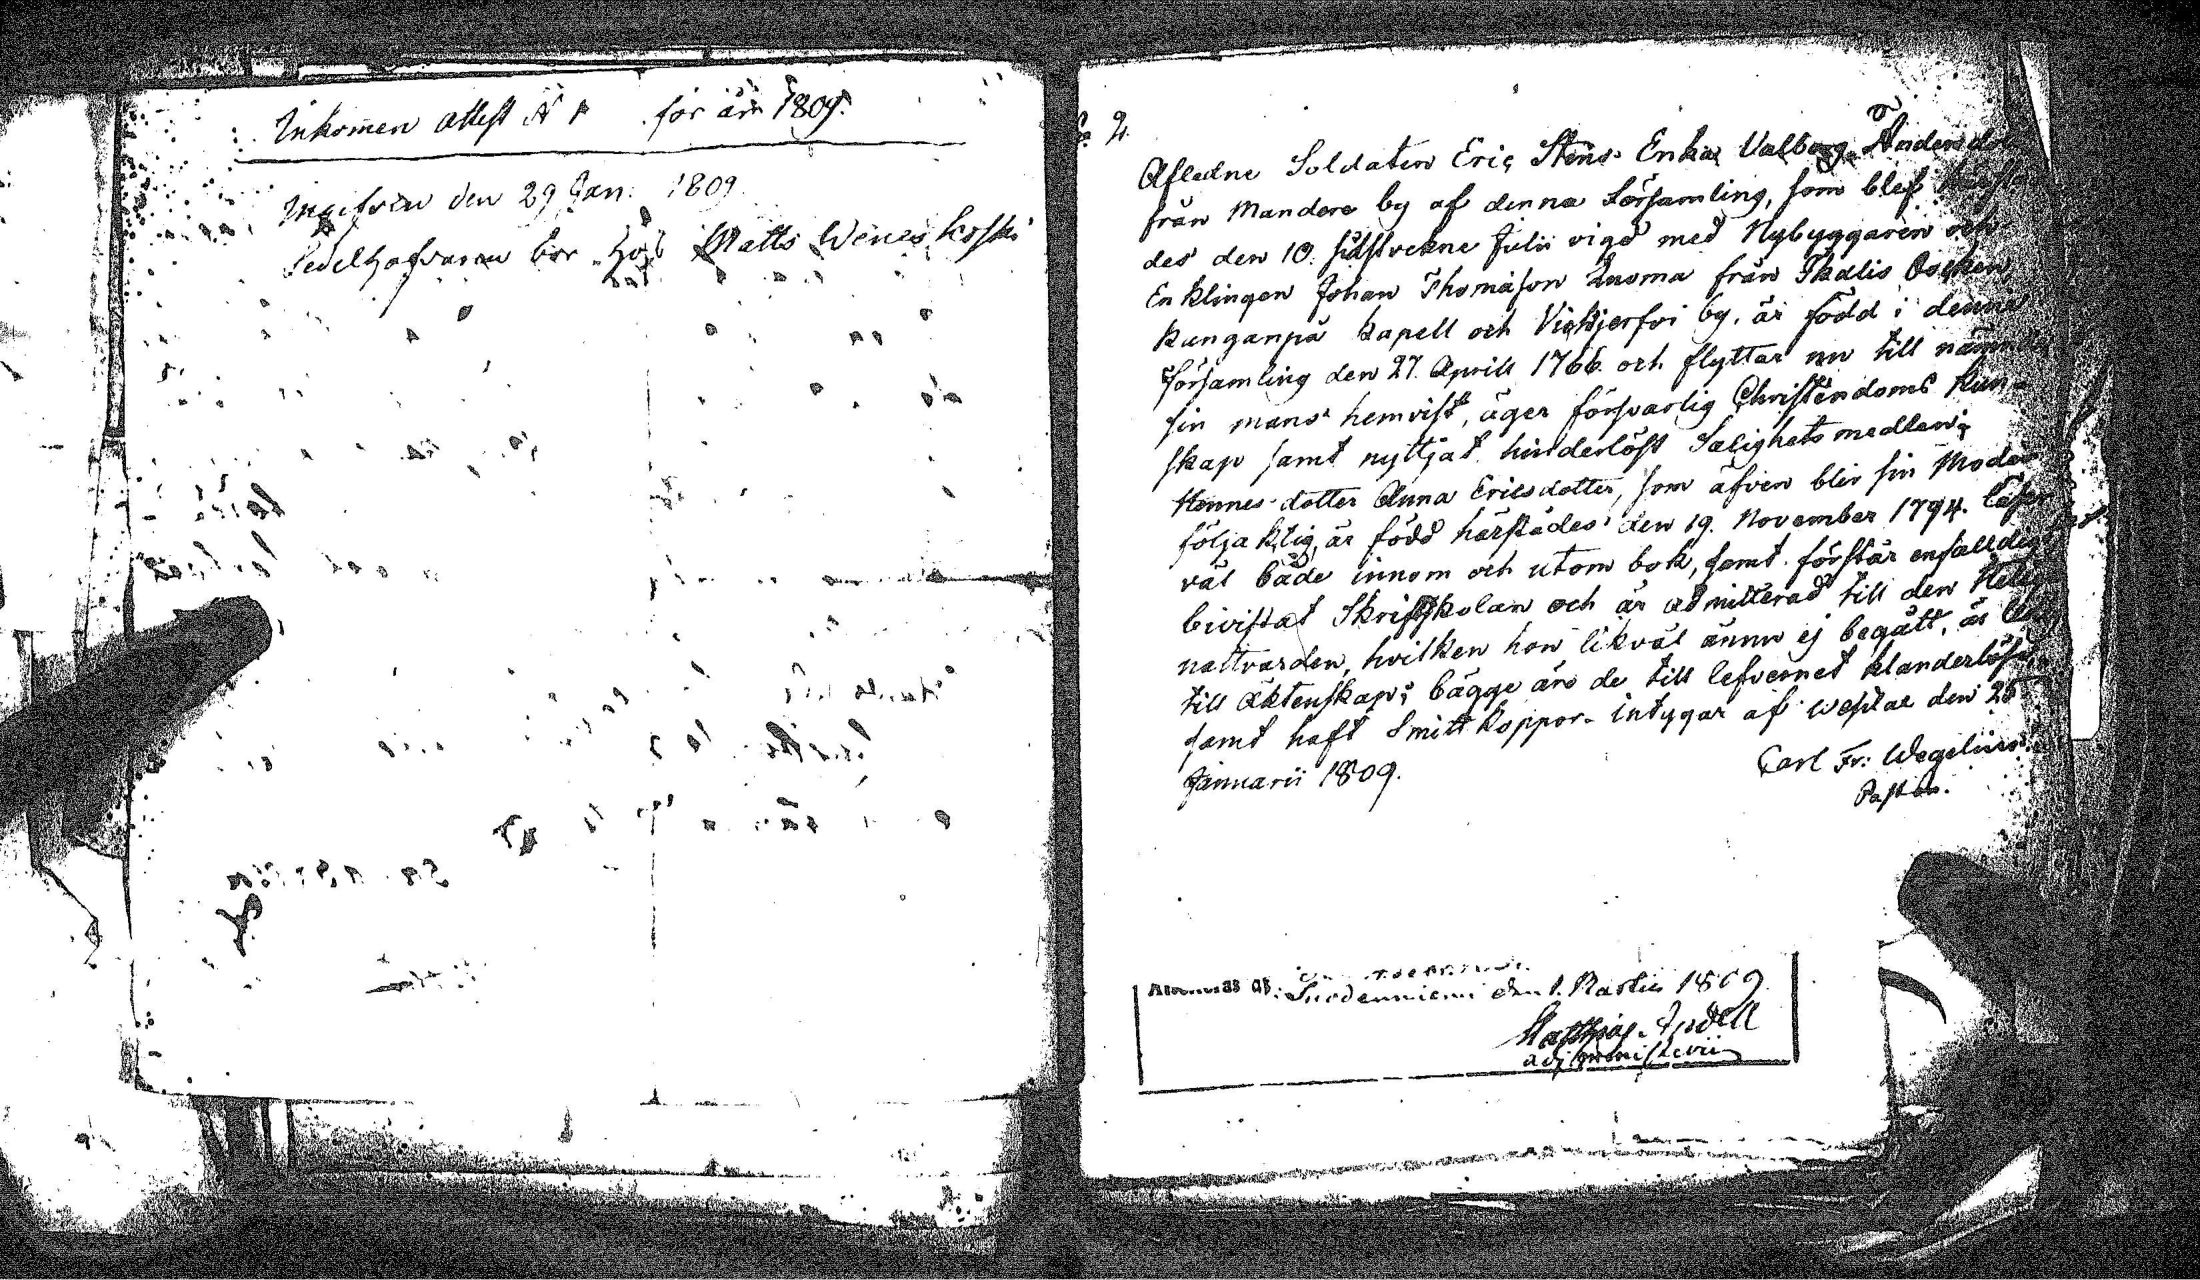 Inkomen attest N 1 för år 1809.
Ingifven den 29 Jan: 1809.
bor hos Matts Weneskoski
2.
Afledne Soldaten Eric Stens Enka Valborg Andersdotter
från Mandere by af denna Församling, som blef
des den 10. sidstvekne Julii vigd med Nybyggaren och
Enklingen Johan Thomasson Luoma från Ikalis Socken,
Kanganpä kapell och by, är född i denna
församling den 27. Aprill 1766. och flyttar nu till
sin mans hemvist, äger försvarlig Christendoms kun-
skap samt nyttjat hinderlöst Salighets medlen;
Hennes dotter Anna Ericsdotter, som äfven blir sin Moder
följaktlig, är född härstädes den 19. November 1794. läser
väl både innom och utom bok, samt förstår enfalldigt
bivistat Skriftskolan och är admitterad till den Helga
nattvarden, hvilken hon likväl ännu ej begått, är
till äktenskap; bägge äro de till lefvernet klanderlösa,
samt haft Smittkoppor. intygar af den 25
Januarii 1809.
Carl Fr: Wegelius
Pastor.
den 1. Martii 1809.
Matthias